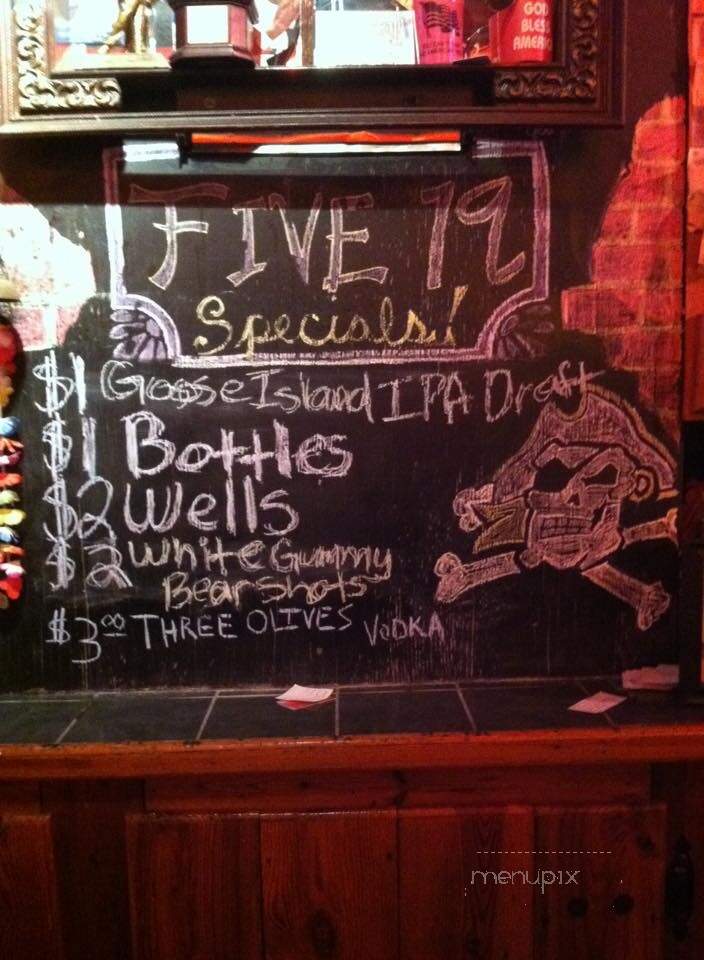 GOD
BLESS
AMERICA
FIVE 19
Specials!
$1 Goose Island IPA Draft
$1 Bottles
$2 Wells
$2 White Gummy
Bear shots
$3.00 THREE OLIVES VODKA
menupix